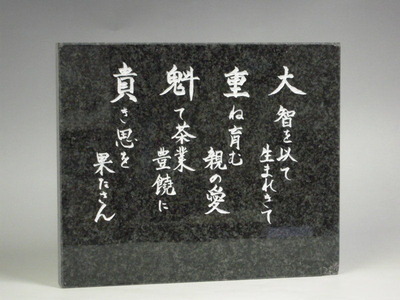 大智を以て
生まれきて
重ね育む
親の愛
魁て茶業
豊饒に
貴き思を
果たさん